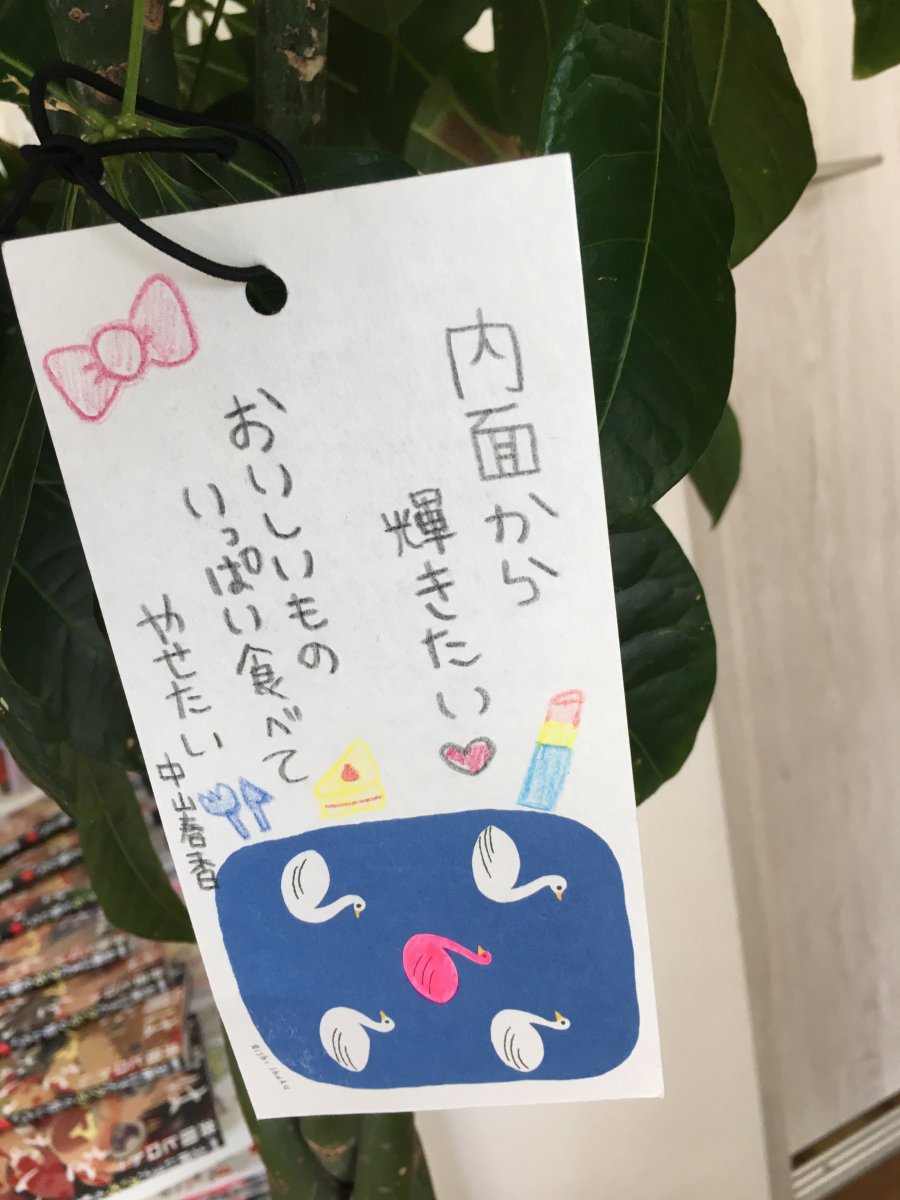 内面から
輝きたい
おいしいもの
いっぱい食べて
やせたい
中山春香
Nishi Shuku